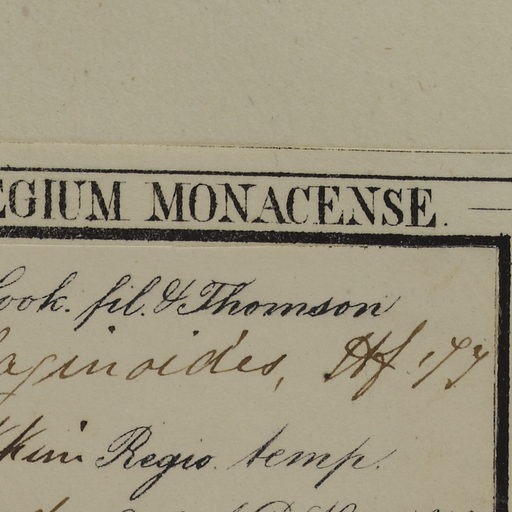 EGIUM MONACENSE.
ook. fil. & Thomson
aginoides, Hf.
kkim Regio. temp.